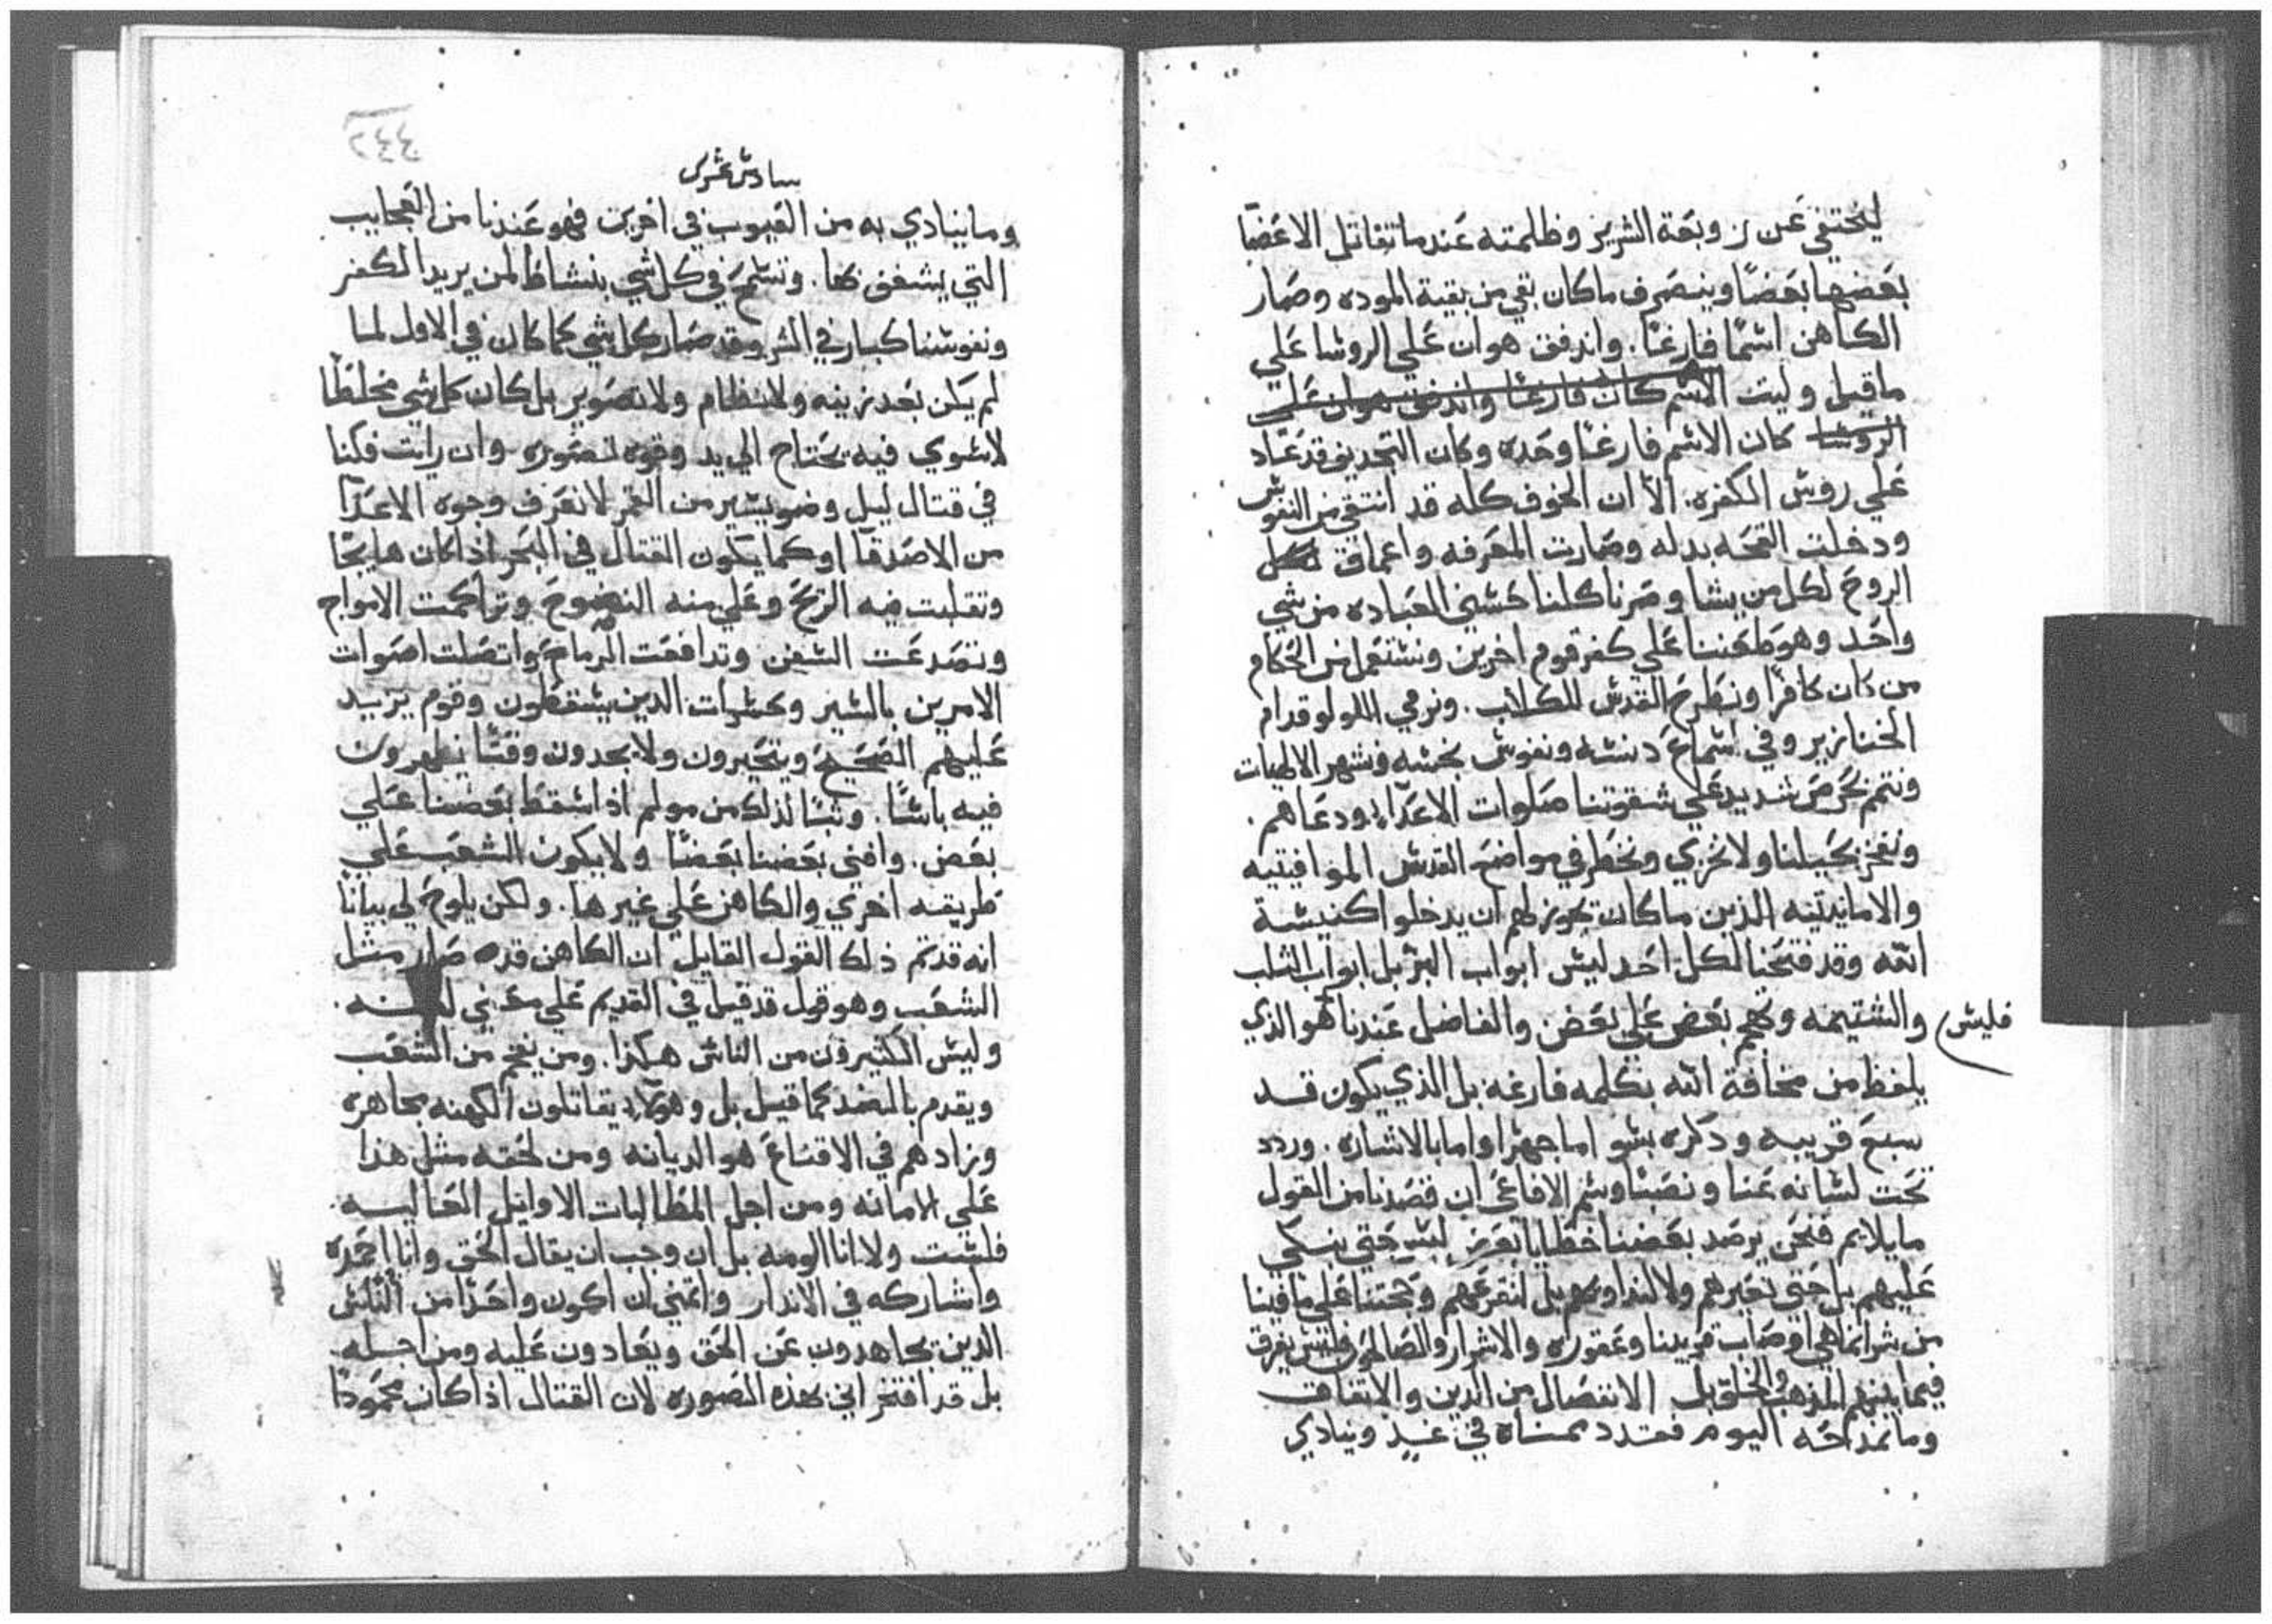 ليختفي عن زوبعة الشرير وظلمته عندما تقاتل الاعضا
بعضها بعضًا وينصرف ماكان بقي من بقية الموده وصار
الكاهن اسمًا فارغًا. واندفق هوان علي الروسا علي
ماقيل وليت الاسم كان فارغًا واندفق هوان علي
الروسا كان الاسم فارغًا وحده وكان التجديف قد عاد
علي روس الكفره. الا ان الخوف كله قد انتفي من النفوس
ودخلت القحه بدله وصارت المعرفه واعماق لكل
الروح لكل من يشا وصرنا كلنا حسني العباده من شي
واحد وهو طعننا علي كفر قوم اخرين ونستعمل من الحكام
من كان كافرًا ونطرح القدس للكلاب. ونرمي اللولو قدام
الخنازير وفي اسماع دنسه ونفوس نجسه ونشهر الالهيات
ونتم بحرص شديد علي شقوتنا صلوات الاعدا ودعاهم.
ونفخر بحيلنا ولا نخزي ونخطر في مواضع القدس الموافيتيه
والامانيتيه الذين ماكان يجوز لهم ان يدخلوا كنيسة
الله وقد فتحنا لكل احد ليس ابواب البر بل ابواب الثلب
والشتيمه وتهجم بعض علي بعض والفاضل عندنا هو الذي
فليس
يلفظ من مخافة الله بكلمه فارغه بل الذي يكون قد
سبع قريبه وذكره بسو اما جهرًا واما بالاشاره. وردد
تحت لسانه عنا ونصبًا وسم الافاعي ان قصدنا من القول
مايلايم فنحن يرصد بعضنا خطايا بعض ليس حتي نبكي
عليهم بل حتي نعيرهم ولا لنداويهم بل لنقرعهم وتحتنا علي ما فينا
من شر انما هي اوصاب قريبنا وعقوره والاشرار والصالحون فليس يفرق
فيما بينهم المذهب والخلق بل الانفصال من الدين والاتفاق
وما نمداحه اليوم فقدد نمشاه في غد وينادي
سادس عشري
وما ينادي به من العيوب في اخرين فهو عندنا من العجايب
التي يشغف بها. ونسلم في كل شي بنشاط لمن يريد الكفر
ونفوسنا كبار في الشر وقد صار كل شي كما كان في الاول لما
لم يكن بعد زينه ولا نظام ولا تصوير بل كان كل شي مخلطًا
لاسوي فيه يحتاج الي يد وقوه تصوره وان رايت فكنا
في قتال ليل وضو يسير من القمر لا نعرف وجوه الاعدا
من الاصدقا او كما يكون القتال في البحر اذا كان هايجًا
وتقلبت فيه الريح وعلي منه النضوح وتراكمت الامواج
وتصدعت السفن وتدافعت الرماح واتصلت اصوات
الامرين بالسير وحسيات الذين يسقطون وقوم يزيد
عليهم الضجيج ويتحيرون ولا يجدون وقتًا يظهرون
فيه باسًا. وتبًا لذلك من مولم اذا سقط بعضنا علي
بعض. وافني بعضنا بعضًا ولا يكون الشعب علي
طريقه اخري والكاهن علي غيرها. ولكن يلوح لي بيانًا
انه قد تم ذلك القول القايل ان الكاهن قد صار مثل
الشعب وهو قول قد قيل في القديم علي معني لعنه.
وليس الكثيرون من الناس هكذا. ومن يفخم من الشعب
ويقدم بالضد كما قيل بل وهولاء يقاتلون الكهنه مجاهره
وزادهم في الاقناع هو الديانه ومن لحقه مثل هذا
علي الامانه ومن اجل المطالبات الاوايل العاليه
فلست ولا انا الومه بل ان وجب ان يقال الحق وانا احمده
واشاركه في الانذار واتمني ان اكون واحدًا من الناس
الذين يجاهدون عن الحق ويعادون عليه ومن اجله
بل قد افتخر اني بهذه الصوره لان القتال اذا كان محمودًا